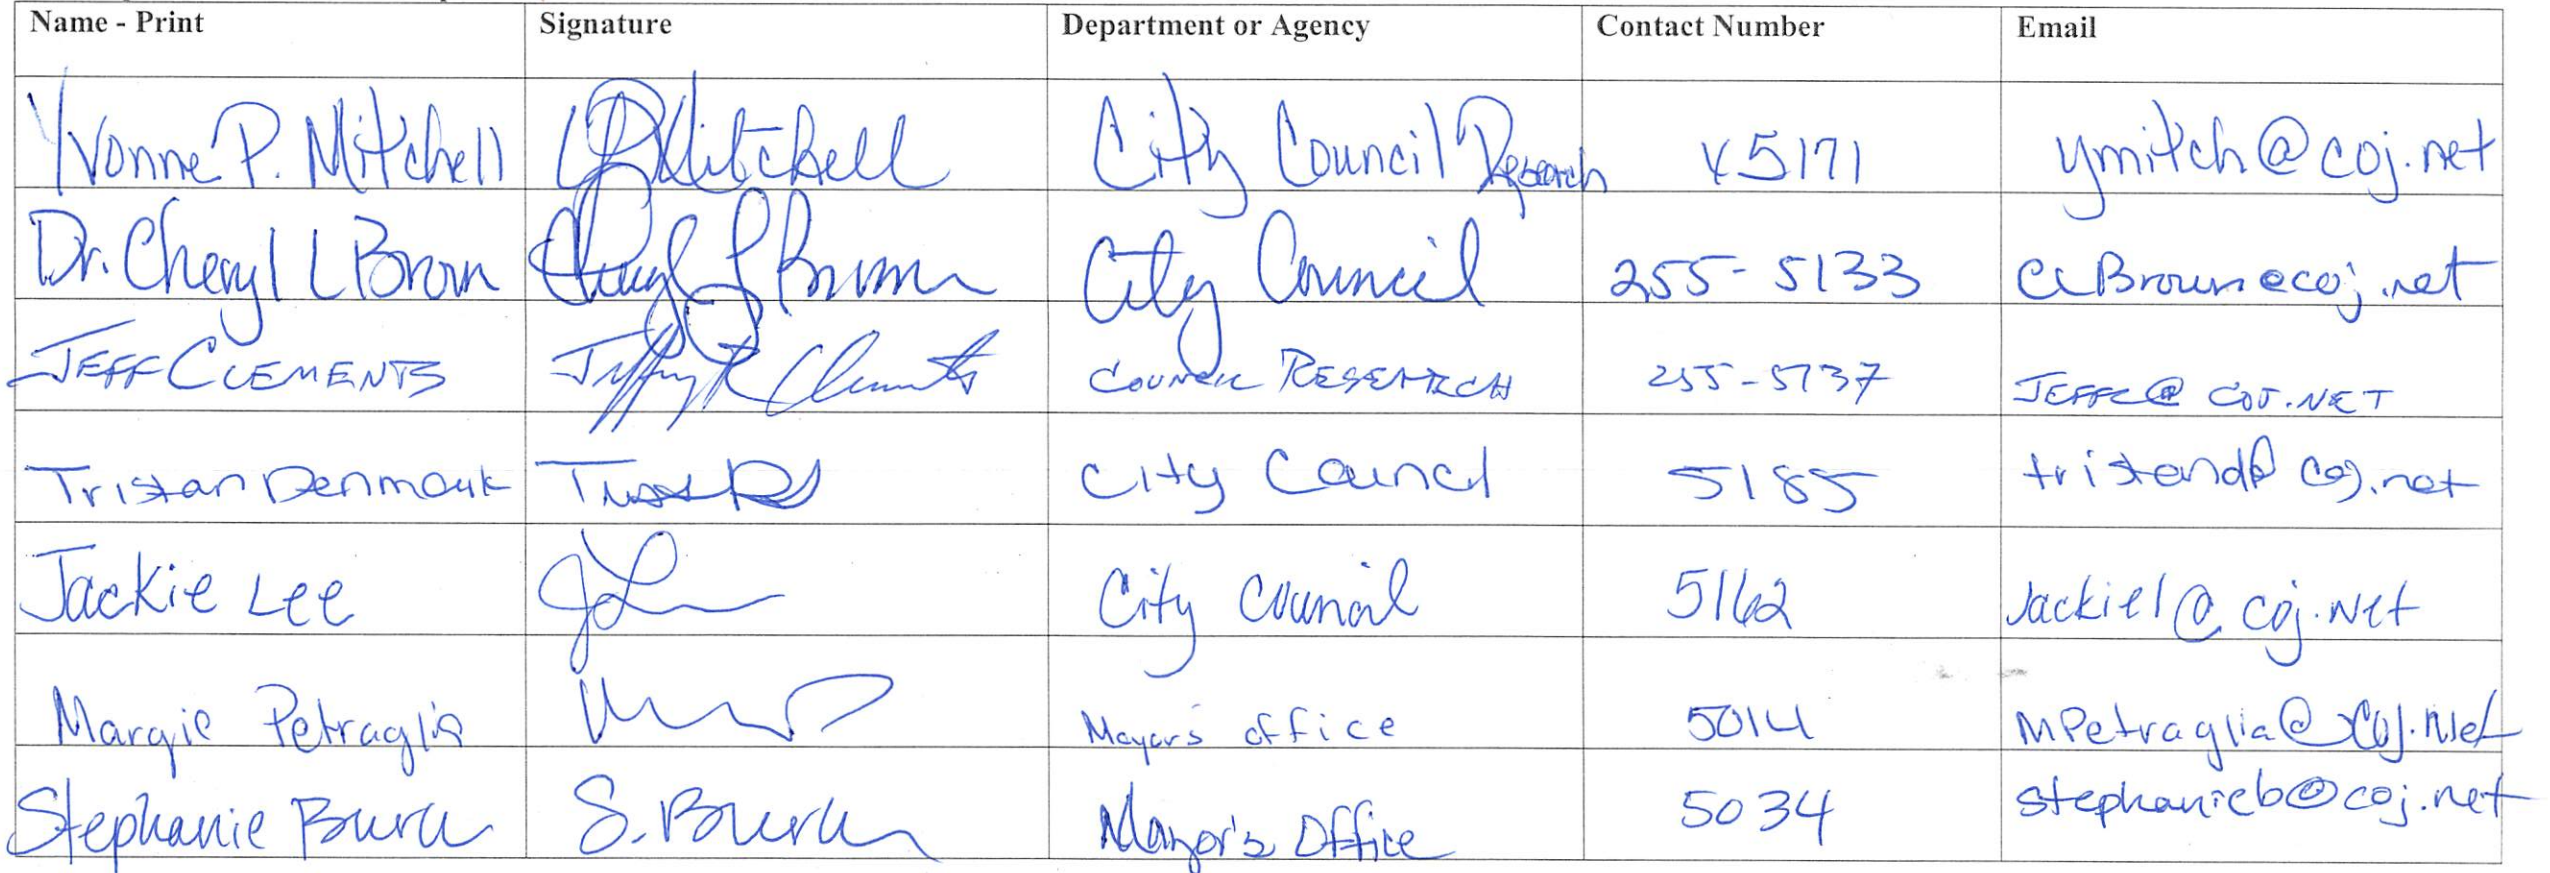 Name - Print Signature Department or Agency Contact Number Email
Yvonne P. Mitchell YPMitchell City Council Research x5171 ymitch@coj.net
Dr. Cheryl L Brown Cheryl L Brown City Council 255-5133 CLBrown@coj.net
JEFF CLEMENTS Jeffrey R Clements COUNCIL RESEARCH 255-5137 JEFFC@COJ.NET
Tristan Denmark City Council 5185 tristand@coj.net
Jackie Lee City Council 5162 Jackiel@coj.net
Margie Petraglia Mayors office 5014 MPetraglia@COJ.Net
Stephanie Burch S. Burch Mayor's Office 5034 stephanieb@coj.net